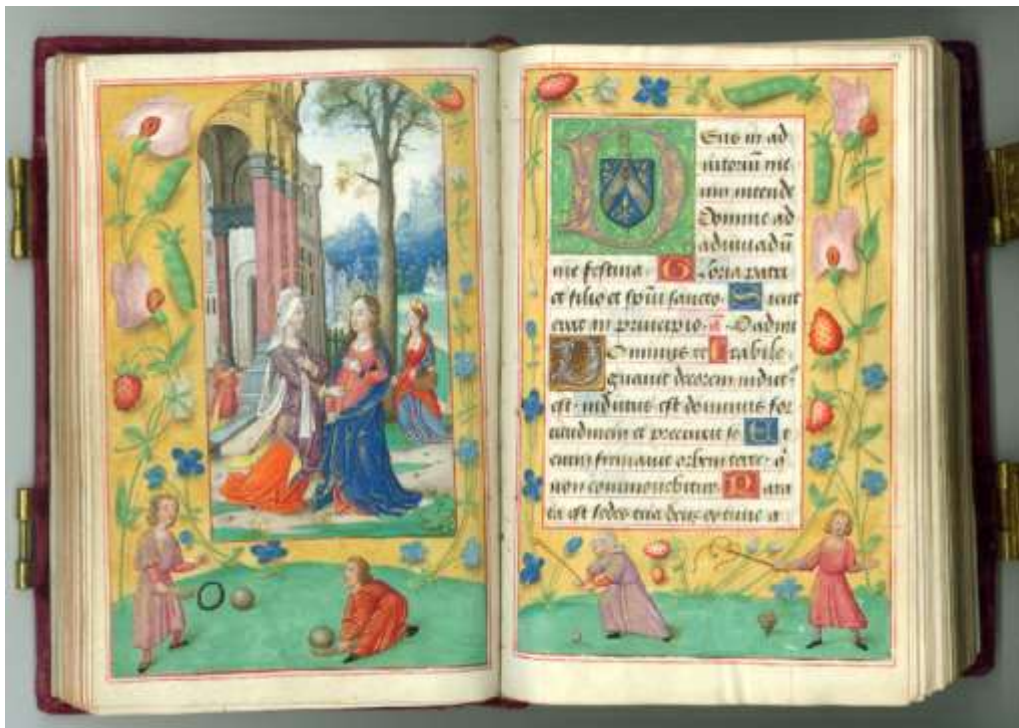 Deus in ad
iutoriū me
um intende
Domine ad
adiuuādū
me festina. Gloria patri
et filio et spūi sancto. Sicut
erat in principio. añ O admi
Dominus re rabile.
gnauit decorem indut⁹
est indutus est dominus for
titudinem et precinxit se Et
enim firmauit orbem terre. q̄
non commouebitur. Para
ta est sedes tua deus ex tunc a